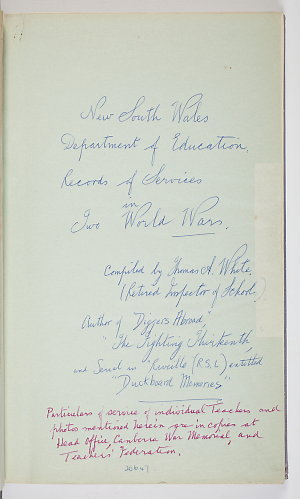 New South Wales
Department of Education.
Records of Services
in
Two World Wars.
Compiled by Thomas A. White.
(Retired Inspector of Schools)
Author of "Diggers Abroad,"
"The Fighting Thirteenth,"
and Serial in "Reveille (R.S.L) entitled
"Duckboard Memories"
Particulars of service of individual Teachers and
photos mentioned herein are in copies at
Head Office, Canberra War Memorial, and
Teachers' Federation.